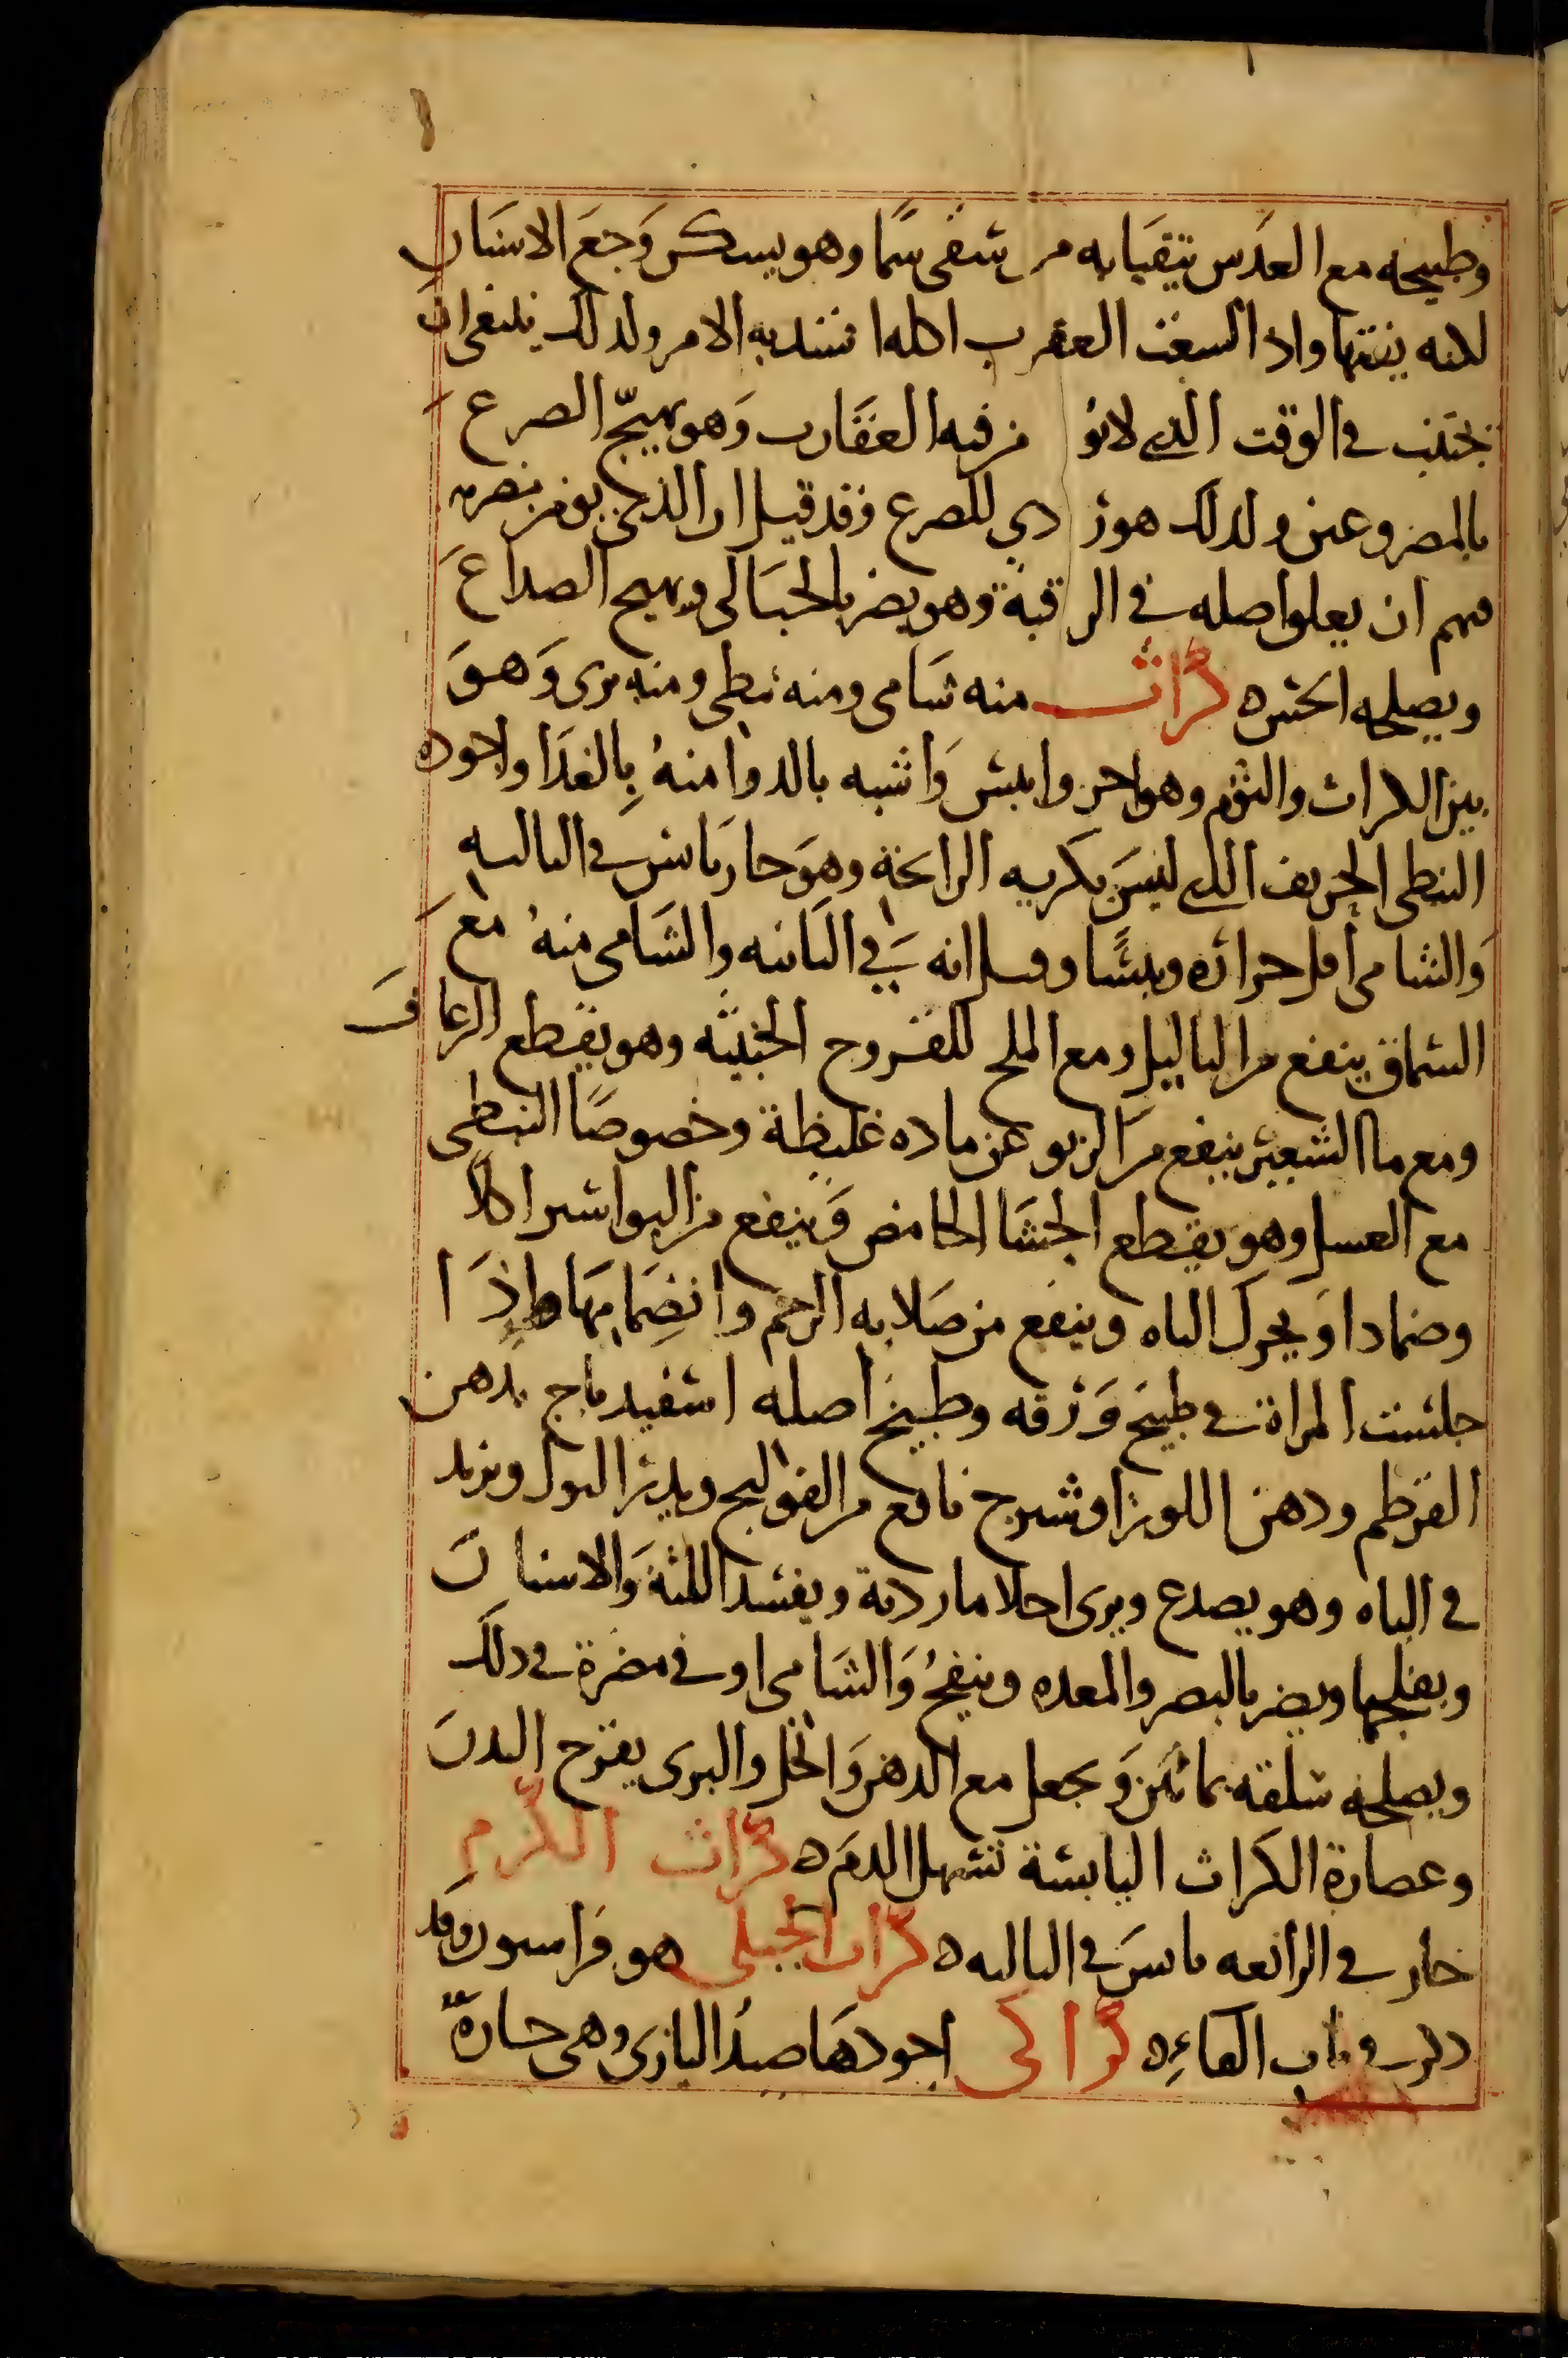 وطبيخه مع العدس يتقيا به من سقى سما وهو يسكن وجع الاسنان
لانه ينقيها واذا لسعت العقرب اكله اشتد به الامر ولذلك ينبغى ان
يجتنب فى الوقت الذى لا يؤمن فيه العقارب وهو يهيج الصرع
بالمصروعين ولذلك هو ردي للصرع وقد قيل ان الذى يومن بضرره
منهم ان يعلق اصله فى الرقبة وهو يضر بالحبالى ويهيج الصداع
ويصلحه الخس ه كراث منه شامى ومنه نبطى ومنه برى وهو
بين الكراث والثوم وهو احر وايبس واشبه بالدوا منه بالغذا واجوده
النبطى الحريف الذى ليس بكريه الرائحة وهو حار يابس فى الثالثه
والشامى اقل حراره ويبسا وقيل انه فى الثانيه والشامى منه مع
السماق ينفع من الثاليل ومع الملح للقروح الخبيثه وهو يقطع الرعاف
ومع ما الشعير ينفع من الربو عن ماده غليظة وخصوصا النبطى
مع العسل وهو يقطع الجشا الحامض وينفع من البواسير اكلا
وضمادا ويحرك الباه وينفع من صلابه الرحم وانضمامها واذا
جلست المراة فى طبيخ ورقه وطبيخ اصله اسفيدباج بدهن
القرطم ودهن اللوز او شيرج نافع من القولنج ويدر البول ويزيد
فى الباه وهو يصدع ويرى احلاما ردية ويفسد اللثة والاسنان
ويقلحها ويضر بالبصر والمعده وينفخ والشامى اوفى مضرة فى ذلك
ويصلحه سلقه بمائين ويجعل مع الدهن والخل والبرى يقرح البدن
وعصارة الكراث اليابسة تسهل الدم ه كراث الكرم
حار فى الرابعه يابس فى الثالثه ه كراث الجبلى هو فراسيون وقد
ذكر فى باب الفاء ه كراكى اجودها صيد البازى وهى حارة